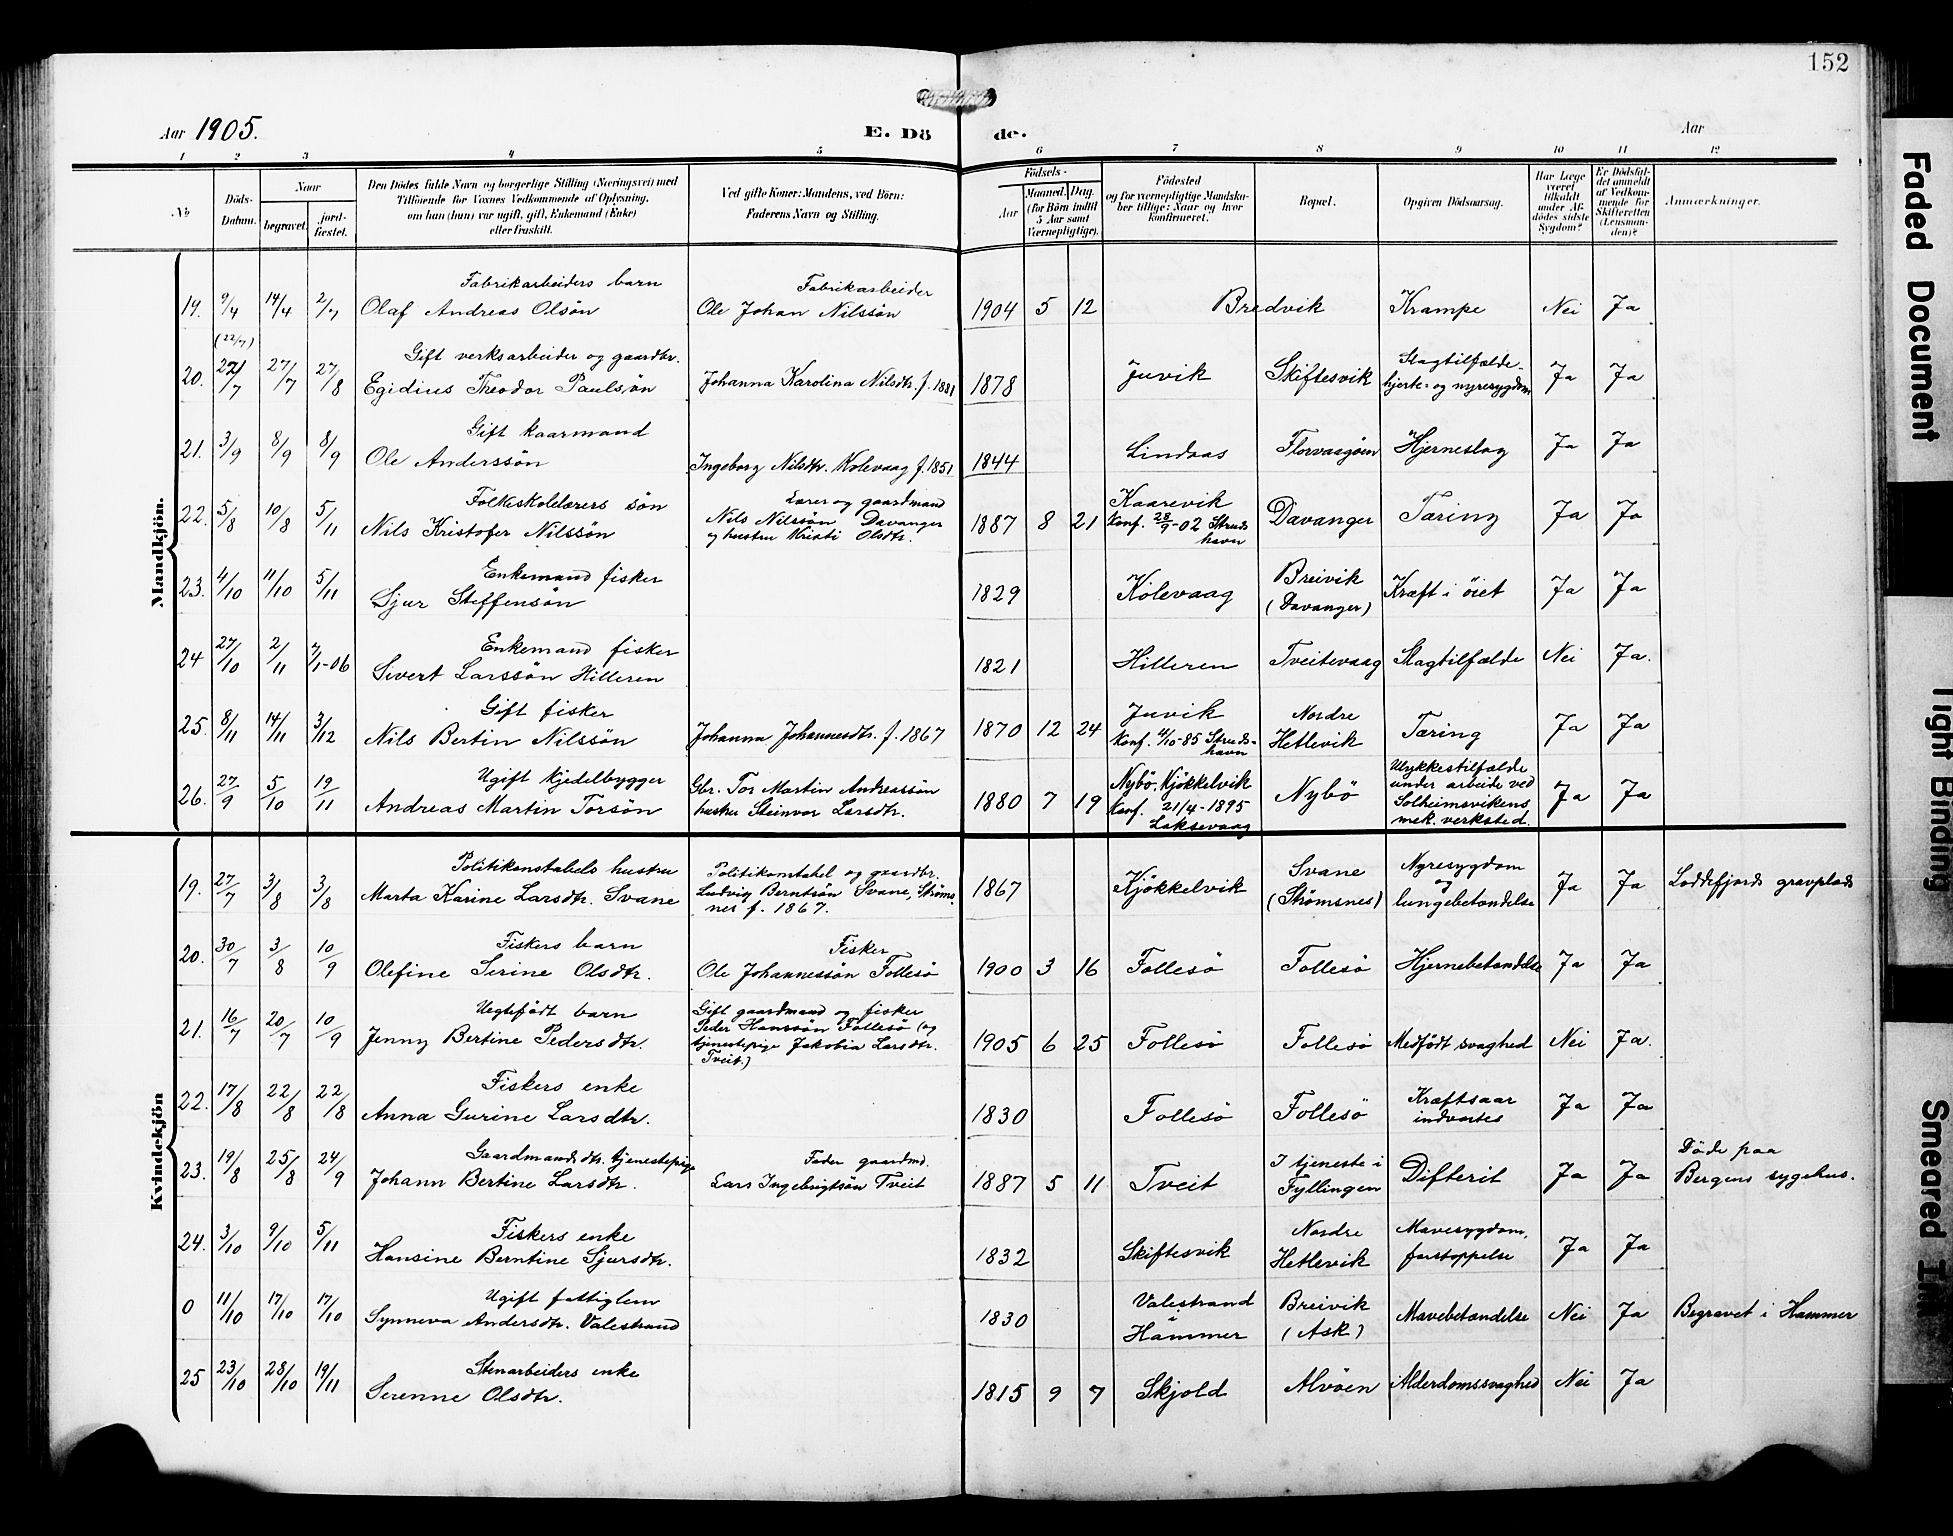 152
Aar 1905.
E. Döde.
Aar
1 2 3 4 5 6 7 8 9 10 11 12
No
Döds-Datum.
Naar
begravet.
jord-fæstet.
Den Dödes fulde Navn og borgerlige Stilling (Næringsvei) med
Tilföiende for Voxnes Vedkommende af Oplysning,
om han (hun) var ugift, gift, Enkemand (Enke)
eller fraskilt.
Ved gifte Koner: Mandens, ved Börn:
Faderens Navn og Stilling.
Födsels-
Aar
Maaned. Dag.
(for Börn indtil
5 Aar samt
Værnepligtige).
Födested
og for værnepligtige Mandska-
ber tillige: Naar og hvor
konfirmeret.
Bopæl.
Opgiven Dödsaarsag.
Har Læge
været
tilkaldt
under Af-
dödes sidste
Sygdom?
Er Dödsfal-
det anmeldt
af Vedkom-
mende for
Skifteretten
(Lensman-
den)?
Anmærkninger.
Mandkjön.
Fabrikarbeiders barn Fabrikarbeider
19. 9/4 14/4 2/7 Olaf Andreas Olsön Ole Johan Nilssön 1904 5 12 Bredvik Krampe Nei Ja
(22/7)
Gift verksarbeider og gaardbr. Slagtilfælde-
20. 22/7 27/7 27/8 Egidius Theodor Paulsön Johanna Karolina Nilsdtr. f. 1881 1878 Juvik Skiftesvik hjerte- og nyresygdom Ja Ja
Gift kaarmand
21. 3/9 8/9 8/9 Ole Anderssön Ingeborg Nilsdtr. Kolevaag f. 1851 1844 Lindaas Florvaagöen Hjerneslag Ja Ja
Folkeskolelærers sön Lærer og gaardmand Kaarevik
22. 5/8 10/8 5/11 Nils Kristofer Nilssön Nils Nilssön Davanger og hustru Kristi Olsdtr. 1887 8 21 Konf. 28/9-02 Struds havn Davanger Tæring Ja Ja
Enkemand fisker Breivik
23. 4/10 11/10 5/11 Sjur Steffensön 1829 Kolevaag (Davanger) Kræft i öiet Ja Ja
Enkemand fisker
24 27/10 2/11 7/1-06 Sivert Larssön Hilleren 1821 Hilleren Tveitevaag Slagtilfælde Nei Ja.
Gift fisker Juvik Nordre
25. 8/11 14/11 3/12 Nils Bertin Nilssön Johanna Johannesdtr. f. 1867 1870 12 24 Konf. 4/10-85 Struds-havn Hetlevik Tæring Ja Ja
Ugift kjedelbygger Gbr. Tor Martin Andreassön Nybö, Kjökkelvik Ulykkestilfælde
26. 27/9 5/10 19/11 Andreas Martin Torsön hustru Steinvor Larsdtr. 1880 7 19 Konf. 21/4-1895 Laksevaag Nybö under arbeide ved Solheimsvikens mek. verksted. Ja Ja
Kvindekjön
Politikonstabels hustru Politikonstabel og gaardbr. Svane Nyresygdom
19. 27/7 3/8 3/8 Marta Karine Larsdtr. Svane Ludvig Berntsön Svane, Ströms-nes f. 1867. 1867 Kjökkelvik (Strömsnes) og lungebetændelse Ja Ja Loddefjords gravplads
Fiskers barn Fisker
20. 30/7 3/8 10/9 Olefine Serine Olsdtr. Ole Johannessön Follesö 1900 3 16 Follesö Follesö Hjernebetændelse Ja Ja
Uegtefödt barn Gift gaardmand og fisker
21. 16/7 20/7 10/9 Jenny Bertine Pedersdtr. Peder Hanssön Follesö (og tjenestepige Jakobia Larsdtr. Tveit) 1905 6 25 Follesö Follesö Medfödt svaghed Nei Ja.
Fiskers enke Kræftsaar
22. 17/8 22/8 22/8 Anna Gurine Larsdtr. 1830 Follesö Follesö indvortes Ja Ja
Gaardmands dtr. tjenestepige Fader gaardmd. I tjeneste i Döde paa
23. 19/8 25/8 24/9 Johann Bertine Larsdtr. Lars Ingebrigtsön Tveit 1887 5 11 Tveit Fyllingen Difterit Ja Ja Bergens sygehus.
Fiskers enke Nordre Mavesygdom,
24. 3/10 9/10 5/11 Hansine Berntine Sjursdtr. 1832 Skiftesvik Hetlevik forstoppelse Ja Ja
Ugift fattiglem Valestrand Breivik
0 11/10 17/10 17/10 Synneva Andersdtr. Valestrand 1830 Hammer (Ask) Mavebetændelse Nei Ja Begravet i Hammer
Stenarbeiders enke
25 23/10 28/10 19/11 Serenne Olsdtr. 1815 9 7 Skjold Alvöen Alderdomssvaghed Nei Ja
Faded Document
Tight Binding
Smeared Ink